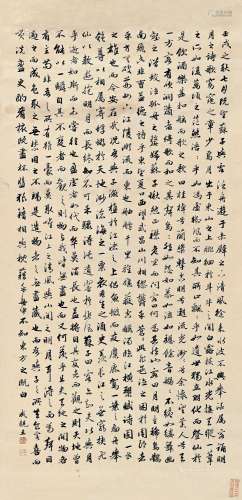 壬戌之秋七月既望蘇子與客泛舟遊於赤壁之下清風徐來水波不興舉酒屬客誦明
月之詩歌窈窕之章少焉月出於東山之上徘徊於斗牛之間白露橫江水光接天縱一葦
之所如凌萬頃之茫然浩浩乎如馮虛御風而不知其所止飄飄乎如遺世獨立羽化而登仙於
是飲酒樂甚扣舷而歌之歌曰桂棹兮蘭槳擊空明兮泝流光渺渺兮予懷望美人兮天一方
客有吹洞簫者倚歌而和之其聲嗚嗚然如怨如慕如泣如訴餘音嫋嫋不絕如縷舞幽
壑之潛蛟泣孤舟之嫠婦蘇子愀然正襟危坐而問客曰何為其然也客曰月明星稀烏鵲
南飛此非曹孟德之詩乎西望夏口東望武昌山川相繆鬱乎蒼蒼此非孟德之困於周郎
者乎方其破荊州下江陵順流而東也舳艫千里旌旗蔽空釃酒臨江橫槊賦詩固一世
之雄也而今安在哉況吾與子漁樵於江渚之上侶魚蝦而友麋鹿駕一葉之扁舟舉
匏尊以相屬寄蜉蝣於天地渺滄海之一粟哀吾生之須臾羨長江之無窮挾飛
仙以遨遊抱明月而長終知不可乎驟得託遺響於悲風蘇子曰客亦知夫水與月
乎逝者如斯而未嘗往也盈虛者如彼而卒莫消長也蓋將自其變者而觀之則天地曾
不能以一瞬自其不變者而觀之則物與我皆無盡也而又何羨乎且夫天地之間物各
有主苟非吾之所有雖一毫而莫取惟江上之清風與山間之明月耳得之而為聲目
遇之而成色取之無禁用之不竭是造物者之無盡藏也而吾與子之所共食客喜而
笑洗盞更酌肴核既盡杯盤狼藉相與枕藉乎舟中不知東方之既白 成親王